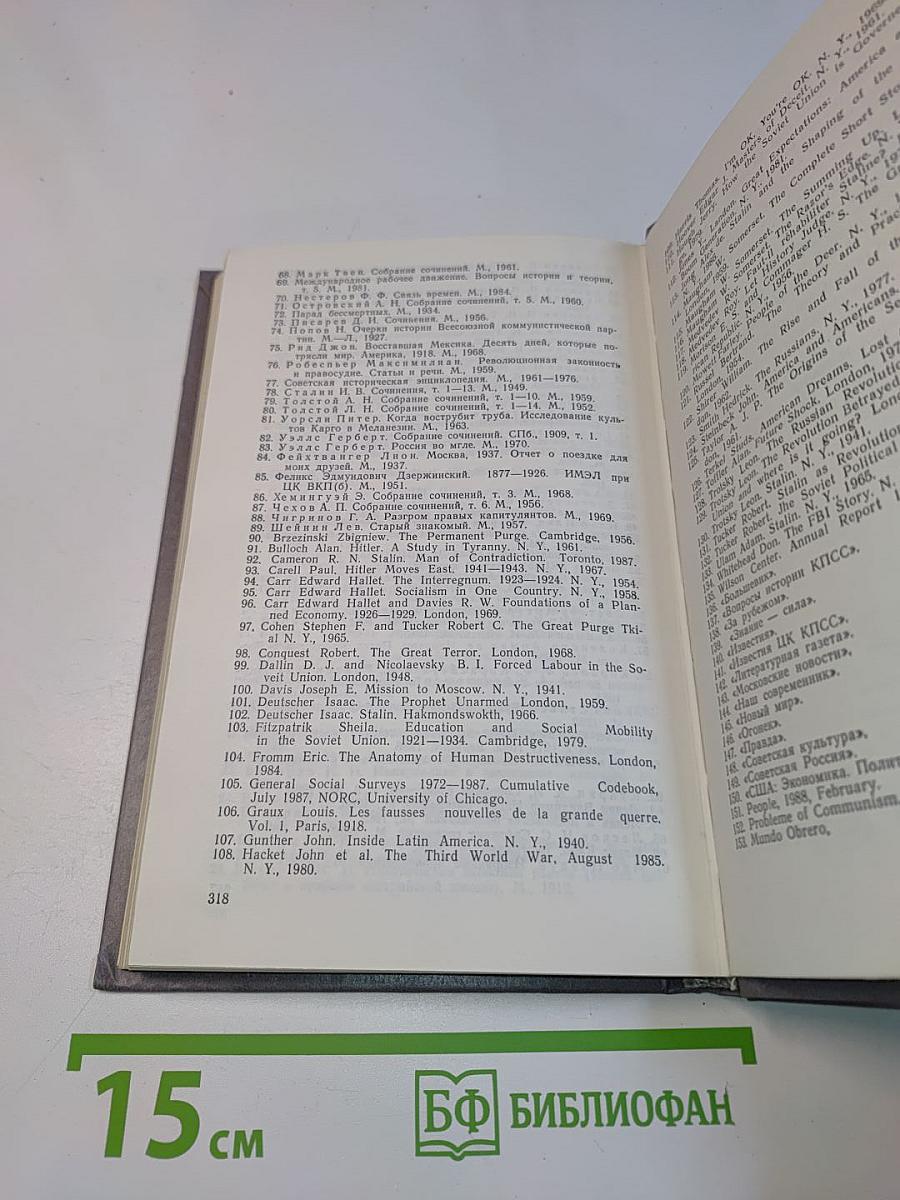 68. Марк Твен. Собрание сочинений. М., 1961.
69. Международное рабочее движение. Вопросы истории и теории,
т. 5. М., 1981.
70. Нестеров Ф. Ф. Связь времен. М., 1984.
71. Островский А. Н. Собрание сочинений, т. 5. М., 1960.
72. Парад бессмертных. М., 1934.
73. Писарев Д. И. Сочинения. М., 1956.
74. Попов Н. Очерки истории Всесоюзной коммунистической пар-
тии. М.—Л., 1927.
75. Рид Джон. Восставшая Мексика. Десять дней, которые по-
трясли мир. Америка, 1918. М., 1968.
76. Робеспьер Максимилиан. Революционная законность
и правосудие. Статьи и речи. М., 1959.
77. Советская историческая энциклопедия. М., 1961—1976.
78. Сталин И. В. Сочинения, т. 1—13. М., 1949.
79. Толстой А. Н. Собрание сочинений, т. 1—10. М., 1959.
80. Толстой Л. Н. Собрание сочинений, т. 1—14. М., 1952.
81. Уорсли Питер. Когда вострубит труба. Исследование куль-
тов Карго в Меланезии. М., 1963.
82. Уэллс Герберт. Собрание сочинений. СПб., 1909, т. 1.
83. Уэллс Герберт. Россия во мгле. М., 1970.
84. Фейхтвангер Лион. Москва, 1937. Отчет о поездке для
моих друзей. М., 1937.
85. Феликс Эдмундович Дзержинский. 1877—1926. ИМЭЛ при
ЦК ВКП(б). М., 1951.
86. Хемингуэй Э. Собрание сочинений, т. 3. М., 1968.
87. Чехов А. П. Собрание сочинений, т. 6. М., 1956.
88. Чигринов Г. А. Разгром правых капитулянтов. М., 1969.
89. Шейнин Лев. Старый знакомый. М., 1957.
90. Brzezinski Zbigniew. The Permanent Purge. Cambridge, 1956.
91. Bulloch Alan. Hitler. A Study in Tyranny. N. Y., 1961.
92. Cameron R. N. Stalin. Man of Contradiction. Toronto, 1987.
93. Carell Paul. Hitler Moves East. 1941—1943. N. Y., 1967.
94. Carr Edward Hallet. The Interregnum. 1923—1924. N. Y., 1954.
95. Carr Edward Hallet. Socialism in One Country. N. Y., 1958.
96. Carr Edward Hallet and Davies R. W. Foundations of a Plan-
ned Economy. 1926—1929. London, 1969.
97. Cohen Stephen F. and Tucker Robert C. The Great Purge Tki-
al N. Y., 1965.
98. Conquest Robert. The Great Terror. London, 1968.
99. Dallin D. J. and Nicolaevsky B. I. Forced Labour in the So-
veit Union. London, 1948.
100. Davis Joseph E. Mission to Moscow. N. Y., 1941.
101. Deutscher Isaac. The Prophet Unarmed London, 1959.
102. Deutscher Isaac. Stalin. Hakmondswokth, 1966.
103. Fitzpatrik Sheila. Education and Social Mobility
in the Soviet Union. 1921—1934. Cambridge, 1979.
104. Fromm Eric. The Anatomy of Human Destructiveness. London,
1984.
105. General Social Surveys 1972—1987. Cumulative Codebook,
July 1987, NORC, University of Chicago.
106. Graux Louis. Les fausses nouvelles de la grande querre,
Vol. 1, Paris, 1918.
107. Gunther John. Inside Latin America. N. Y., 1940.
108. Hacket John et al. The Third World War, August 1985.
N. Y., 1980.
318
Thomas. I'm OK, You're OK. N. Y., 1969
Edgar J. Masters of Deceit. N. Y., 1961.
Jerry. How the Soviet Union is Governe
London. Great Expectations: America a
Generation. N. Y., 1981.
de. Stalin and the Shaping of the
W. Somerset. The Complete Short Sto
W. Somerset. The Summing Up. L
W. Somerset. The Razor's Edge. N.
Roy. Let History Judge. N. Y.,
Faut-il réhabiliter Staline?
E. S. and Commager H. S. The G
Republic. N. Y., 1956.
Parley. People of the Deer. N. Y.,
Theory and Prac
William. The Rise and Fall of the
don, 1962.
Smith Hedrick. The Russians. N. Y., 1977.
Steinbeck John. America and Americans.
125. Taylor A. J. P. The Origins of the Se
don, 1961.
126. Terkel Studs. American Dreams. Lost
127. Toffler Alan. Future Shock. London, 197
128. Trotsky Leon. The Russian Revolution
129. Trotsky Leon. The Revolution Betrayed
Union and where is it going? Lon
130. Trotsky Leon. Stalin. N. Y., 1941.
131. Tucker Robert. Stalin as Revolution
132. Tucker Robert. Jhe Soviet Political
133. Ulam Adam. Stalin. N. Y., 1965.
134. Whitehead Don. The FBI Story. N.
135. Wilson Center. Annual Report 1
136. «Большевик».
137. «Вопросы истории КПСС».
138. «За рубежом».
139. «Знание — сила».
140. «Известия».
141. «Известия ЦК КПСС».
142. «Литературная газета».
143. «Московские новости».
144. «Наш современник».
145. «Новый мир».
146. «Огонек».
147. «Правда».
148. «Советская культура».
149. «Советская Россия».
150. «США: Экономика. Полит
151. People, 1988, February.
152. Probleme of Communism.
153. Mundo Obrero,
15 см
БФ БИБЛИОФАН